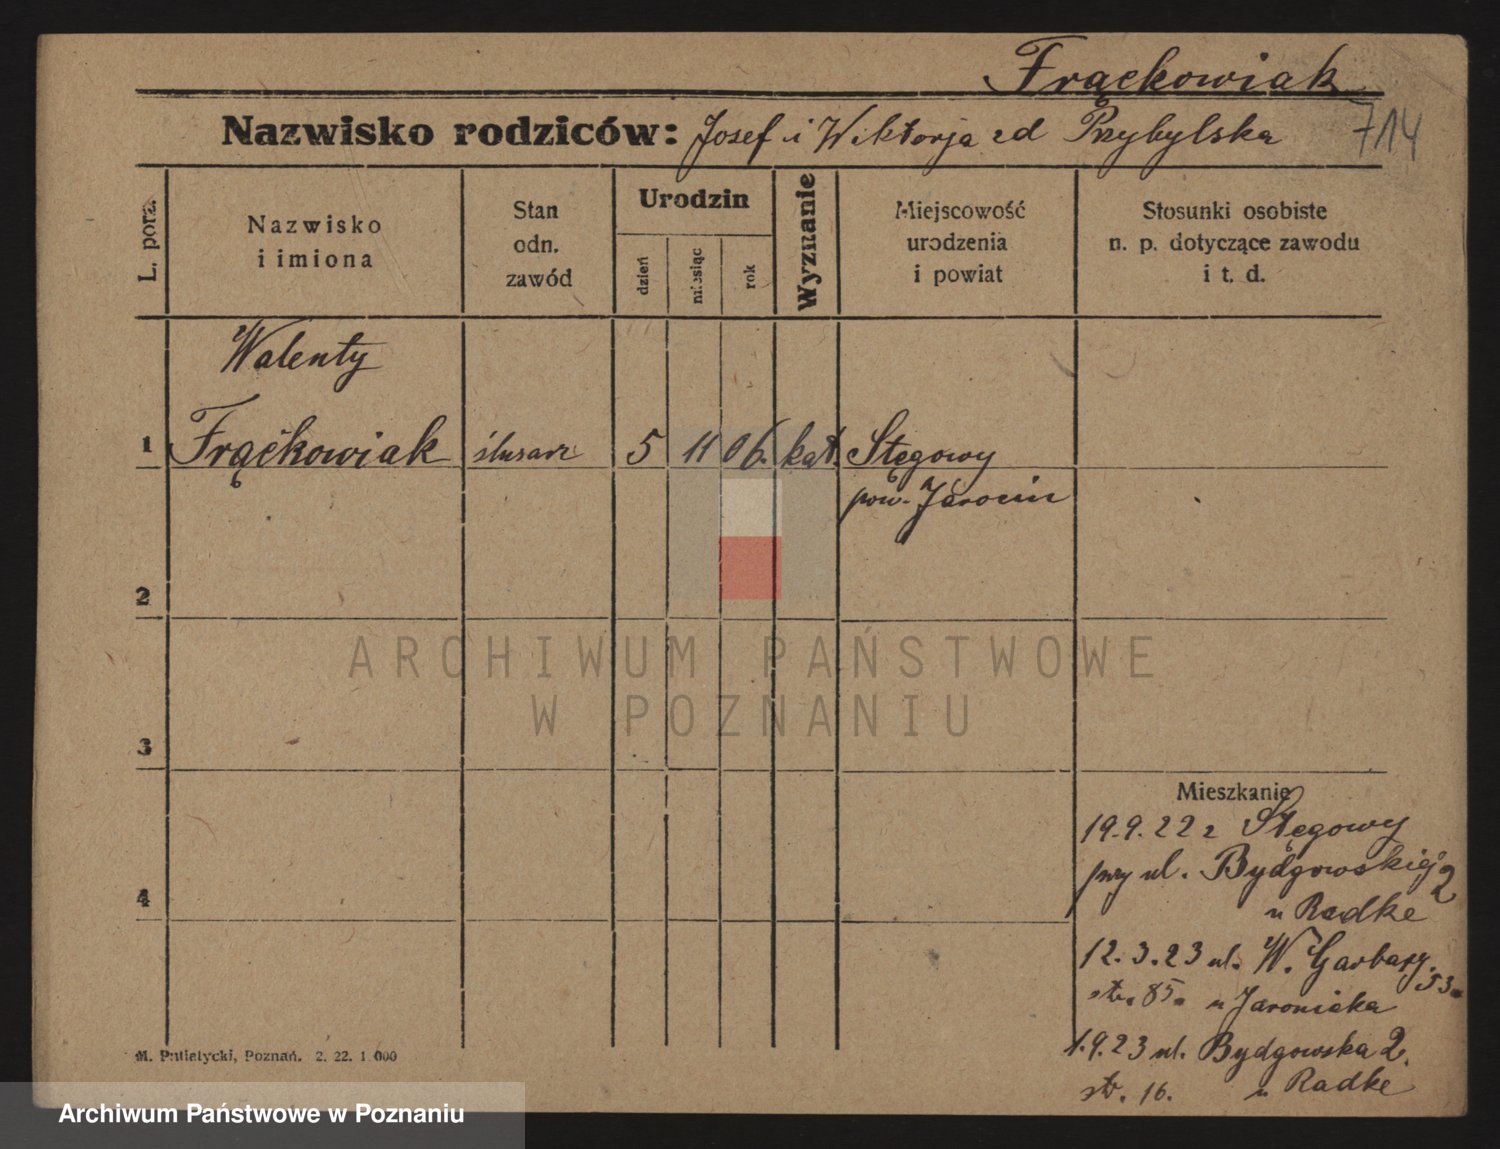 Frąckowiak
Nazwisko rodziców: Josef i Wiktorja zd Przybylska
714
L. porz.
Nazwisko
i imiona
Stan
odn.
zawód
Urodzin
dzień
miesiąc
rok
Wyznanie
Miejscowość
urodzenia
i powiat
Stosunki osobiste
n. p. dotyczące zawodu
i t. d.
Walenty
1 Frąckowiak ślusarz 5 11 06. kat. Stęgowy
pow. Jarocin
2
3
4
Mieszkanie
19.9.22 z Stęgowy
przy ul. Bydgowskiej 2
u Radke
12.3.23 ul. W. Garbary 53.
str. 85. u Jaroniaka
1.9.23 ul. Bydgowska 2.
str. 16. u Radke
M. Putiatycki, Poznań. 2. 22. 1 000
ARCHIWUM PAŃSTWOWE
W POZNANIU
Archiwum Państwowe w Poznaniu